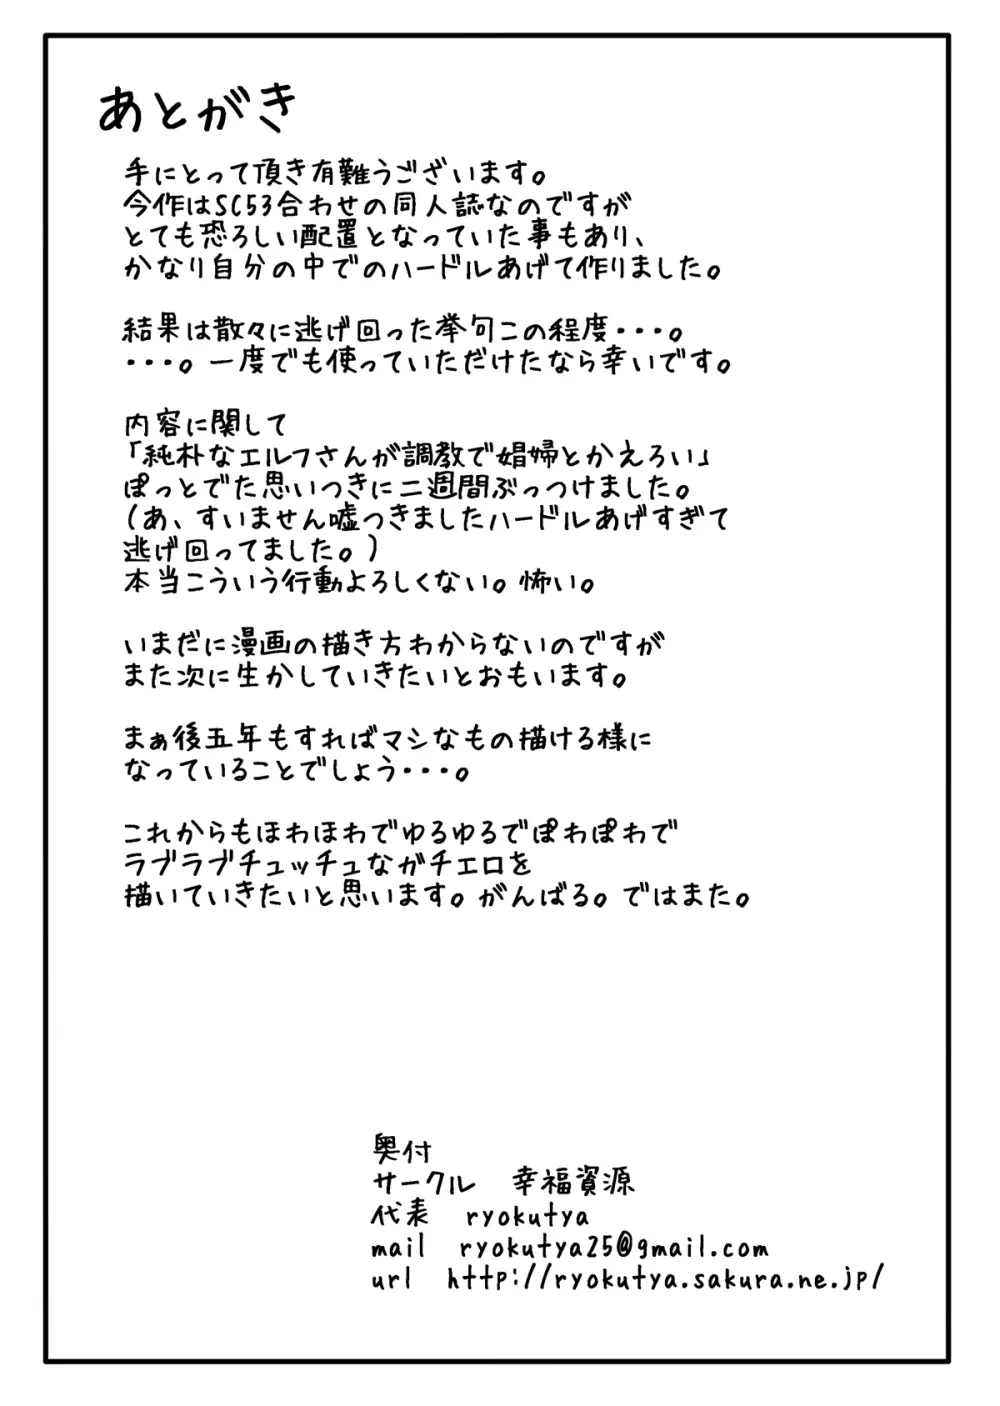 あとがき
手にとって頂き有難うございます。
今作はSC53合わせの同人誌なのですが
とても恐ろしい配置となっていた事もあり、
かなり自分の中でのハードルあげて作りました。
結果は散々に逃げ回った挙句この程度・・・。
・・・。一度でも使っていただけたなら幸いです。
内容に関して
「純朴なエルフさんが調教で娼婦とかえろい」
ぽっとでた思いつきに二週間ぶっつけました。
(あ、すいません嘘つきましたハードルあげすぎて
逃げ回ってました。)
本当こういう行動よろしくない。怖い。
いまだに漫画の描き方わからないのですが
また次に生かしていきたいとおもいます。
まぁ後五年もすればマシなもの描ける様に
なっていることでしょう・・・。
これからもほわほわでゆるゆるでぽわぽわで
ラブラブチュッチュなガチエロを
描いていきたいと思います。がんばる。ではまた。
奥付
サークル 幸福資源
代表 ryokutya
mail ryokutya25@gmail.com
url http://ryokutya.sakura.ne.jp/